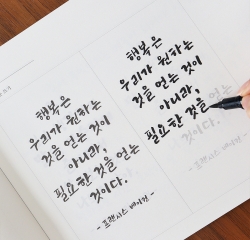 행복은
우리가 원하는
것을 얻는 것이
아니라,
필요한 것을 얻는
것이다.
- 프랜시스 베이컨 -
행복은
우리가 원하는
것을 얻는 것이
아니라,
필요한 것을 얻는
것이다.
- 프랜시스 베이컨 -